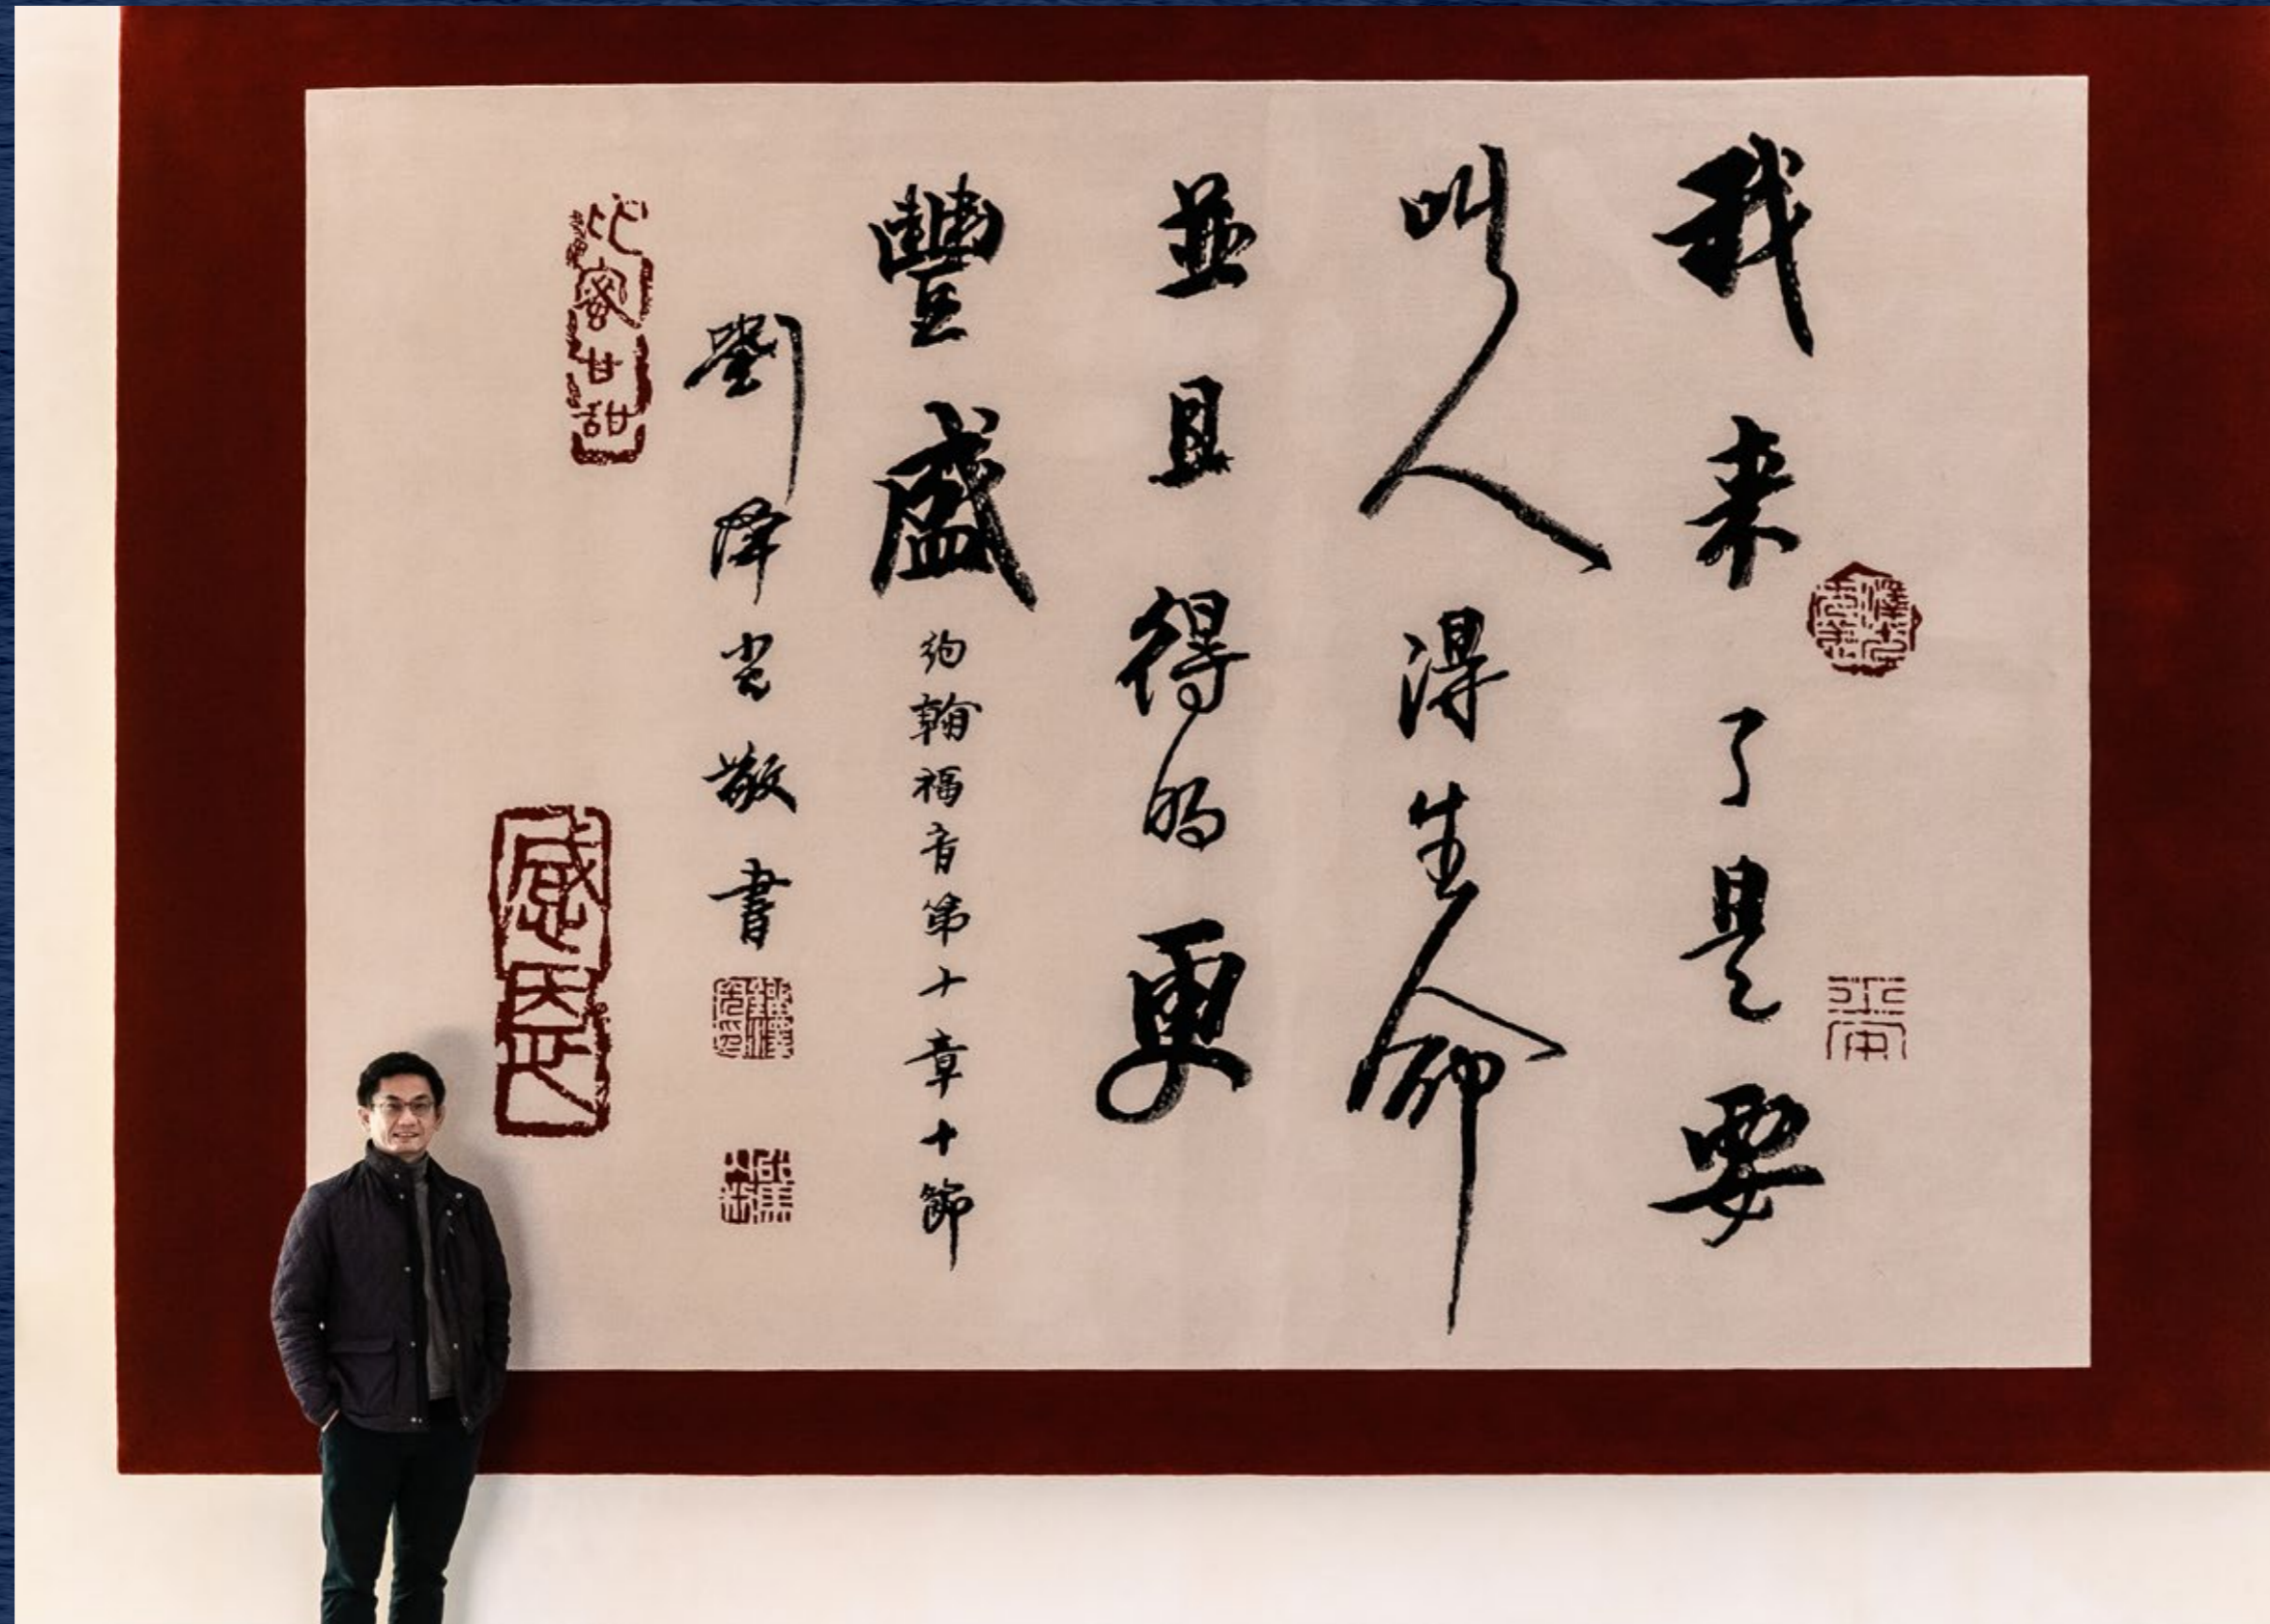 我来了是要
叫人得生命
並且得的更
豐盛
約翰福音第十章十節
劉泽光敬書
比蜜甘甜
感恩